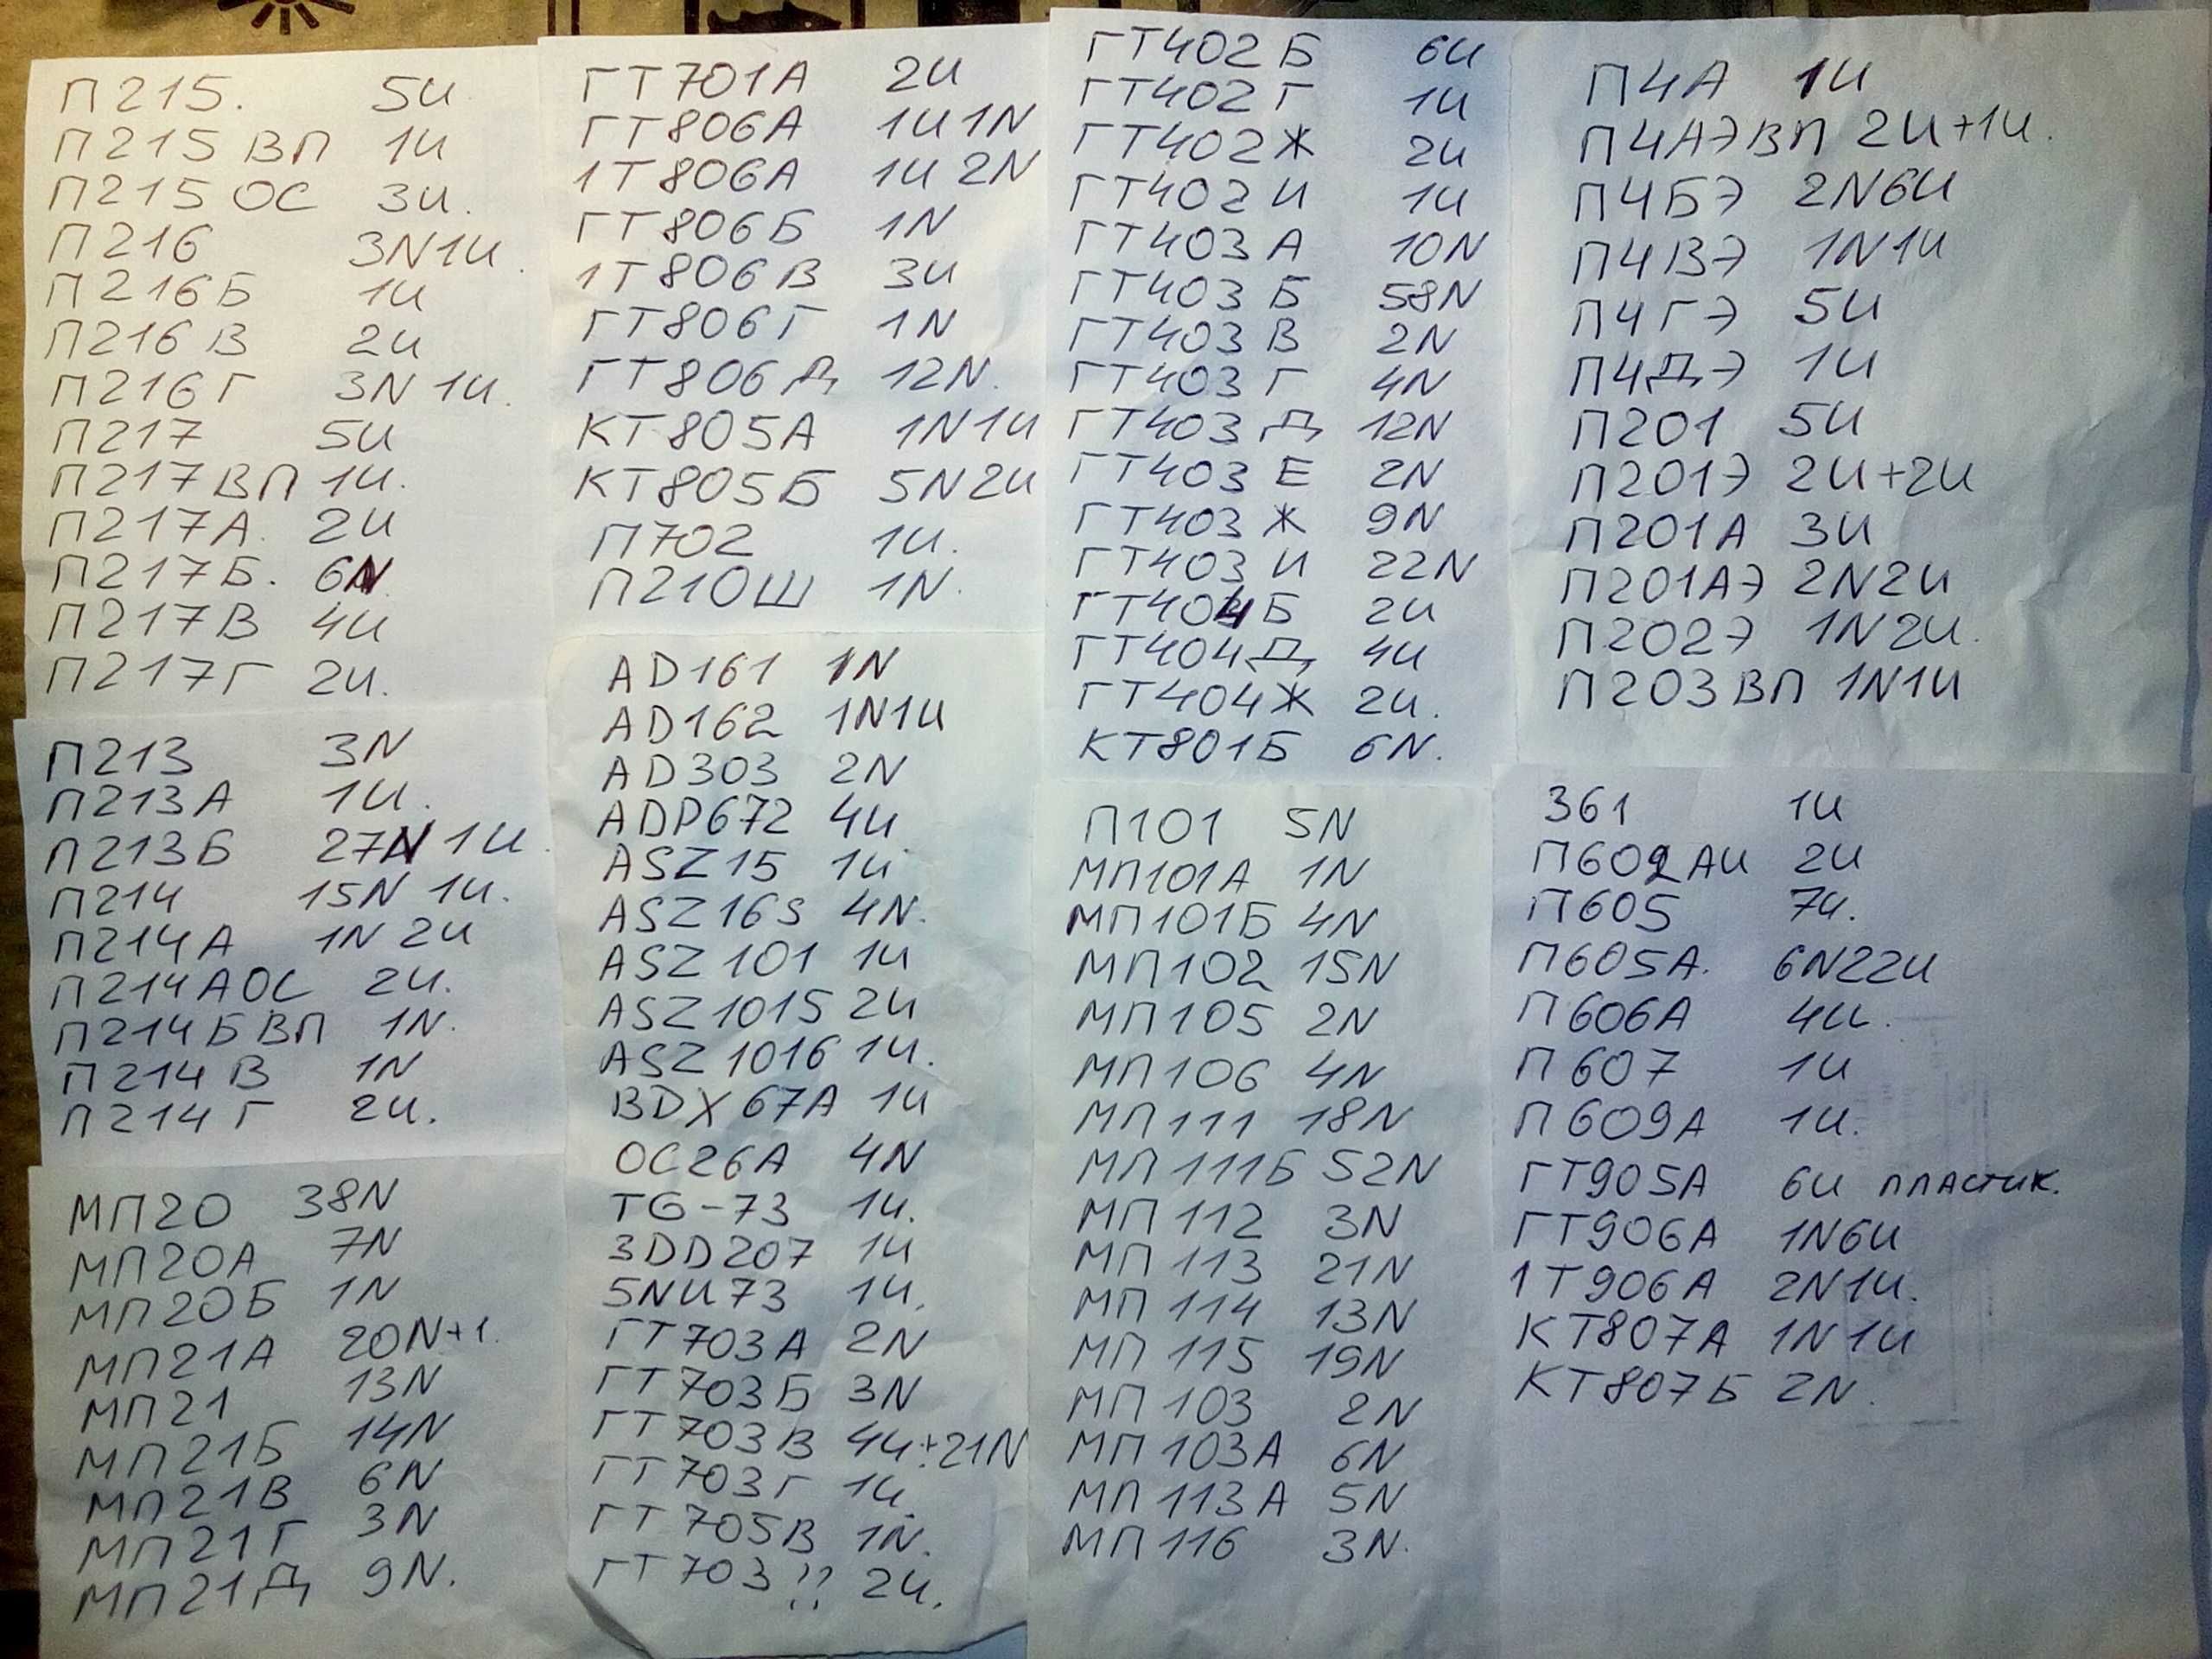 П215. 5И
П215 ВП 1И
П215 ОС 3И.
П216 3N1И.
П216Б 1И
П216 В 2И
П216 Г 3N 1И.
П217 5И
П217 ВП 1И.
П217А. 2И
П217Б. 6N
П217В 4И
П217Г 2И.
П213 3N
П213А 1И.
П213Б 27N 1И.
П214 15N 1И.
П214А 1N 2И
П214АОС 2И.
П214Б ВП 1N.
П214 В 1N
П214 Г 2И.
МП20 38N
МП20А 7N
МП20Б 1N
МП21А 20N+1.
МП21 13N
МП21Б 14N
МП21В 6N
МП21Г 3N
МП21Д 9N.
ГТ701А 2И
ГТ806А 1И1N
1Т806А 1И 2N
ГТ806Б 1N
1Т806В 3И
ГТ806Г 1N
ГТ806Д 12N.
КТ805А 1N1И
КТ805Б 5N2И
П702 1И.
П210Ш 1N.
AD161 1N
AD162 1N1И
AD303 2N
ADP672 4И
ASZ15 1И
ASZ16S 4N.
ASZ101 1И
ASZ1015 2И
ASZ1016 1И.
BDX67A 1И
OC26A 4N
TG-73 1И.
3DD207 1И
5NU73 1И.
ГТ703А 2N
ГТ703Б 3N
ГТ703В 4И+21N
ГТ703Г 1И.
ГТ705В 1N.
ГТ703?? 2И.
ГТ402Б 6И
ГТ402Г 1И
ГТ402Ж 2И
ГТ402И 1И
ГТ403А 10N
ГТ403Б 58N
ГТ403В 2N
ГТ403Г 4N
ГТ403Д 12N
ГТ403Е 2N
ГТ403Ж 9N
ГТ403И 22N
ГТ404Б 2И
ГТ404Д 4И
ГТ404Ж 2И.
КТ801Б 6N.
П101 5N
МП101А 1N
МП101Б 4N
МП102 15N
МП105 2N
МП106 4N
МП111 18N
МП111Б 52N
МП112 3N
МП113 21N
МП114 13N
МП115 19N
МП103 2N
МП103А 6N
МП113А 5N
МП116 3N.
П4А 1И
П4АЭВП 2И+1И.
П4БЭ 2N6И
П4ВЭ 1N1И
П4ГЭ 5И
П4ДЭ 1И
П201 5И
П201Э 2И+2И
П201А 3И
П201АЭ 2N2И
П202Э 1N2И.
П203ВП 1N1И
361 1И
П602АИ 2И
П605 7И.
П605А. 6N22И
П606А 4И.
П607 1И
П609А 1И.
ГТ905А 6И пластик.
ГТ906А 1N6И
1Т906А 2N1И.
КТ807А 1N1И
КТ807Б 2N.